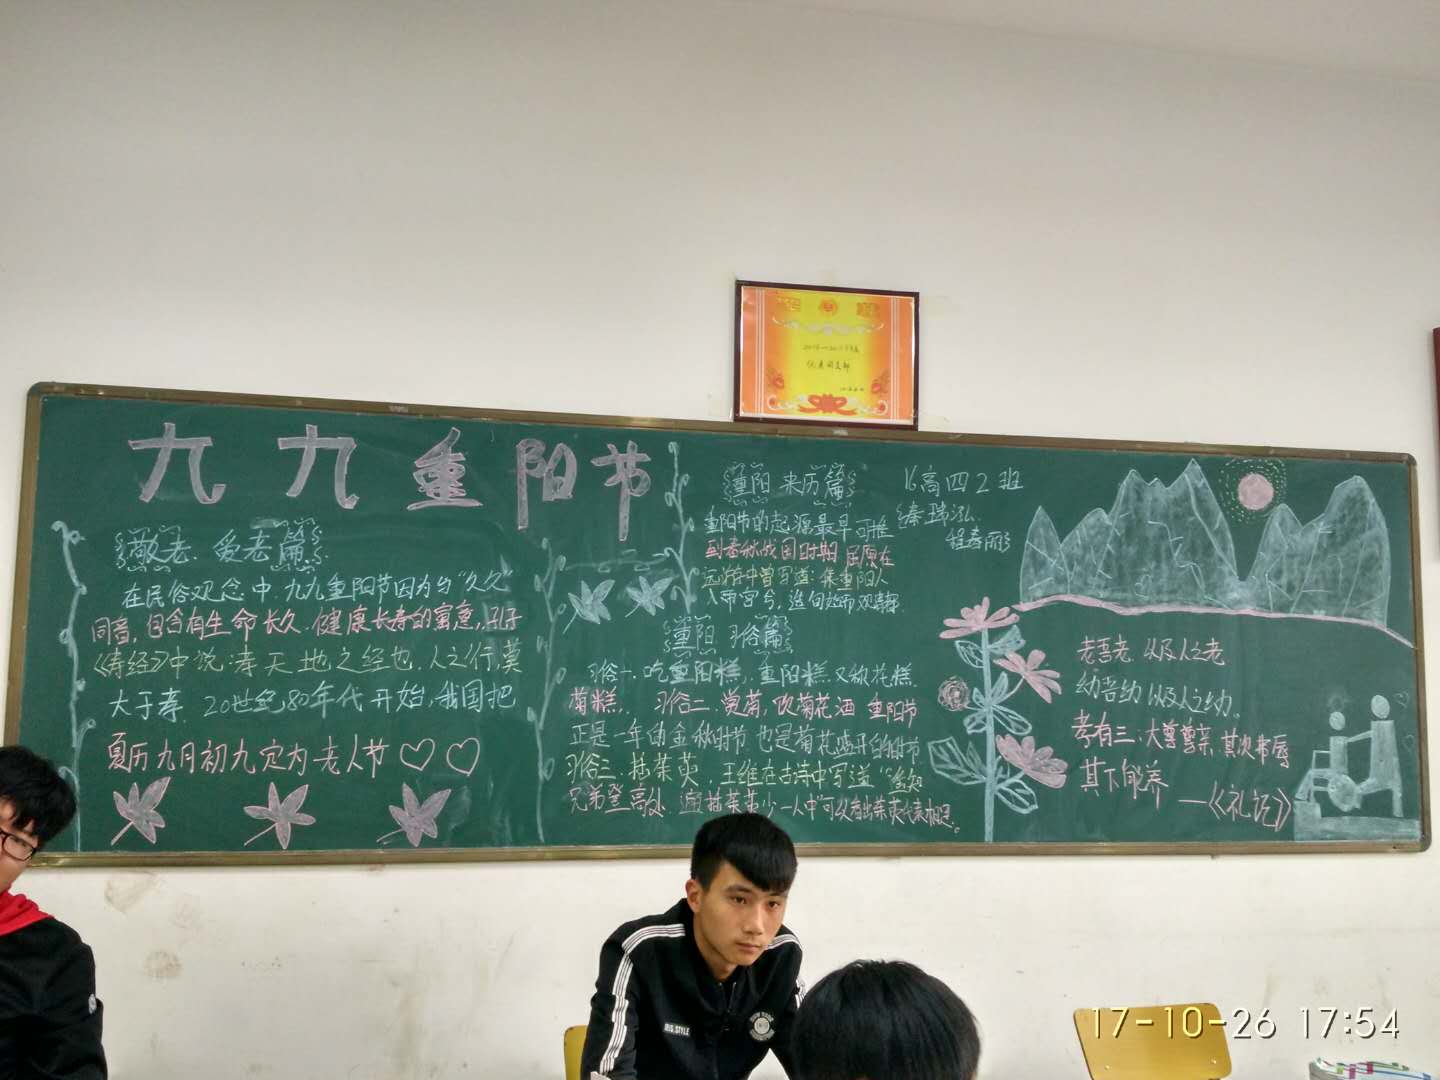 九九重阳节
敬老.爱老篇
在民俗观念中九九重阳节因为与“久久”
同音,包含有生命长久.健康长寿的寓意,孔子
《孝经》中说:孝天地之经也,人之行,莫
大于孝.20世纪80年代开始,我国把
夏历九月初九定为老人节
重阳来历篇
重阳节的起源最早可推
到春秋战国时期屈原在
远游中曾写道:集重阳入
入帝宫兮,造旬始而观清都.
重阳习俗篇
习俗一.吃重阳糕,重阳糕又称花糕.
菊糕,.习俗二.赏菊,饮菊花酒 重阳节
正是一年的金秋时节也是菊花盛开的时节
习俗三.插茱萸,王维在古诗中写道“遥知
兄弟登高处 遍插茱萸少一人中”可以看出茱萸代表相思。
16高四2班
秦瑞泓
程春丽
老吾老 以及人之老
幼吾幼 以及人之幼。
孝有三:大尊尊亲,其次弗辱
其下能养
—《礼记》
优秀团支部
IRIS.STYLE
17-10-26 17:54